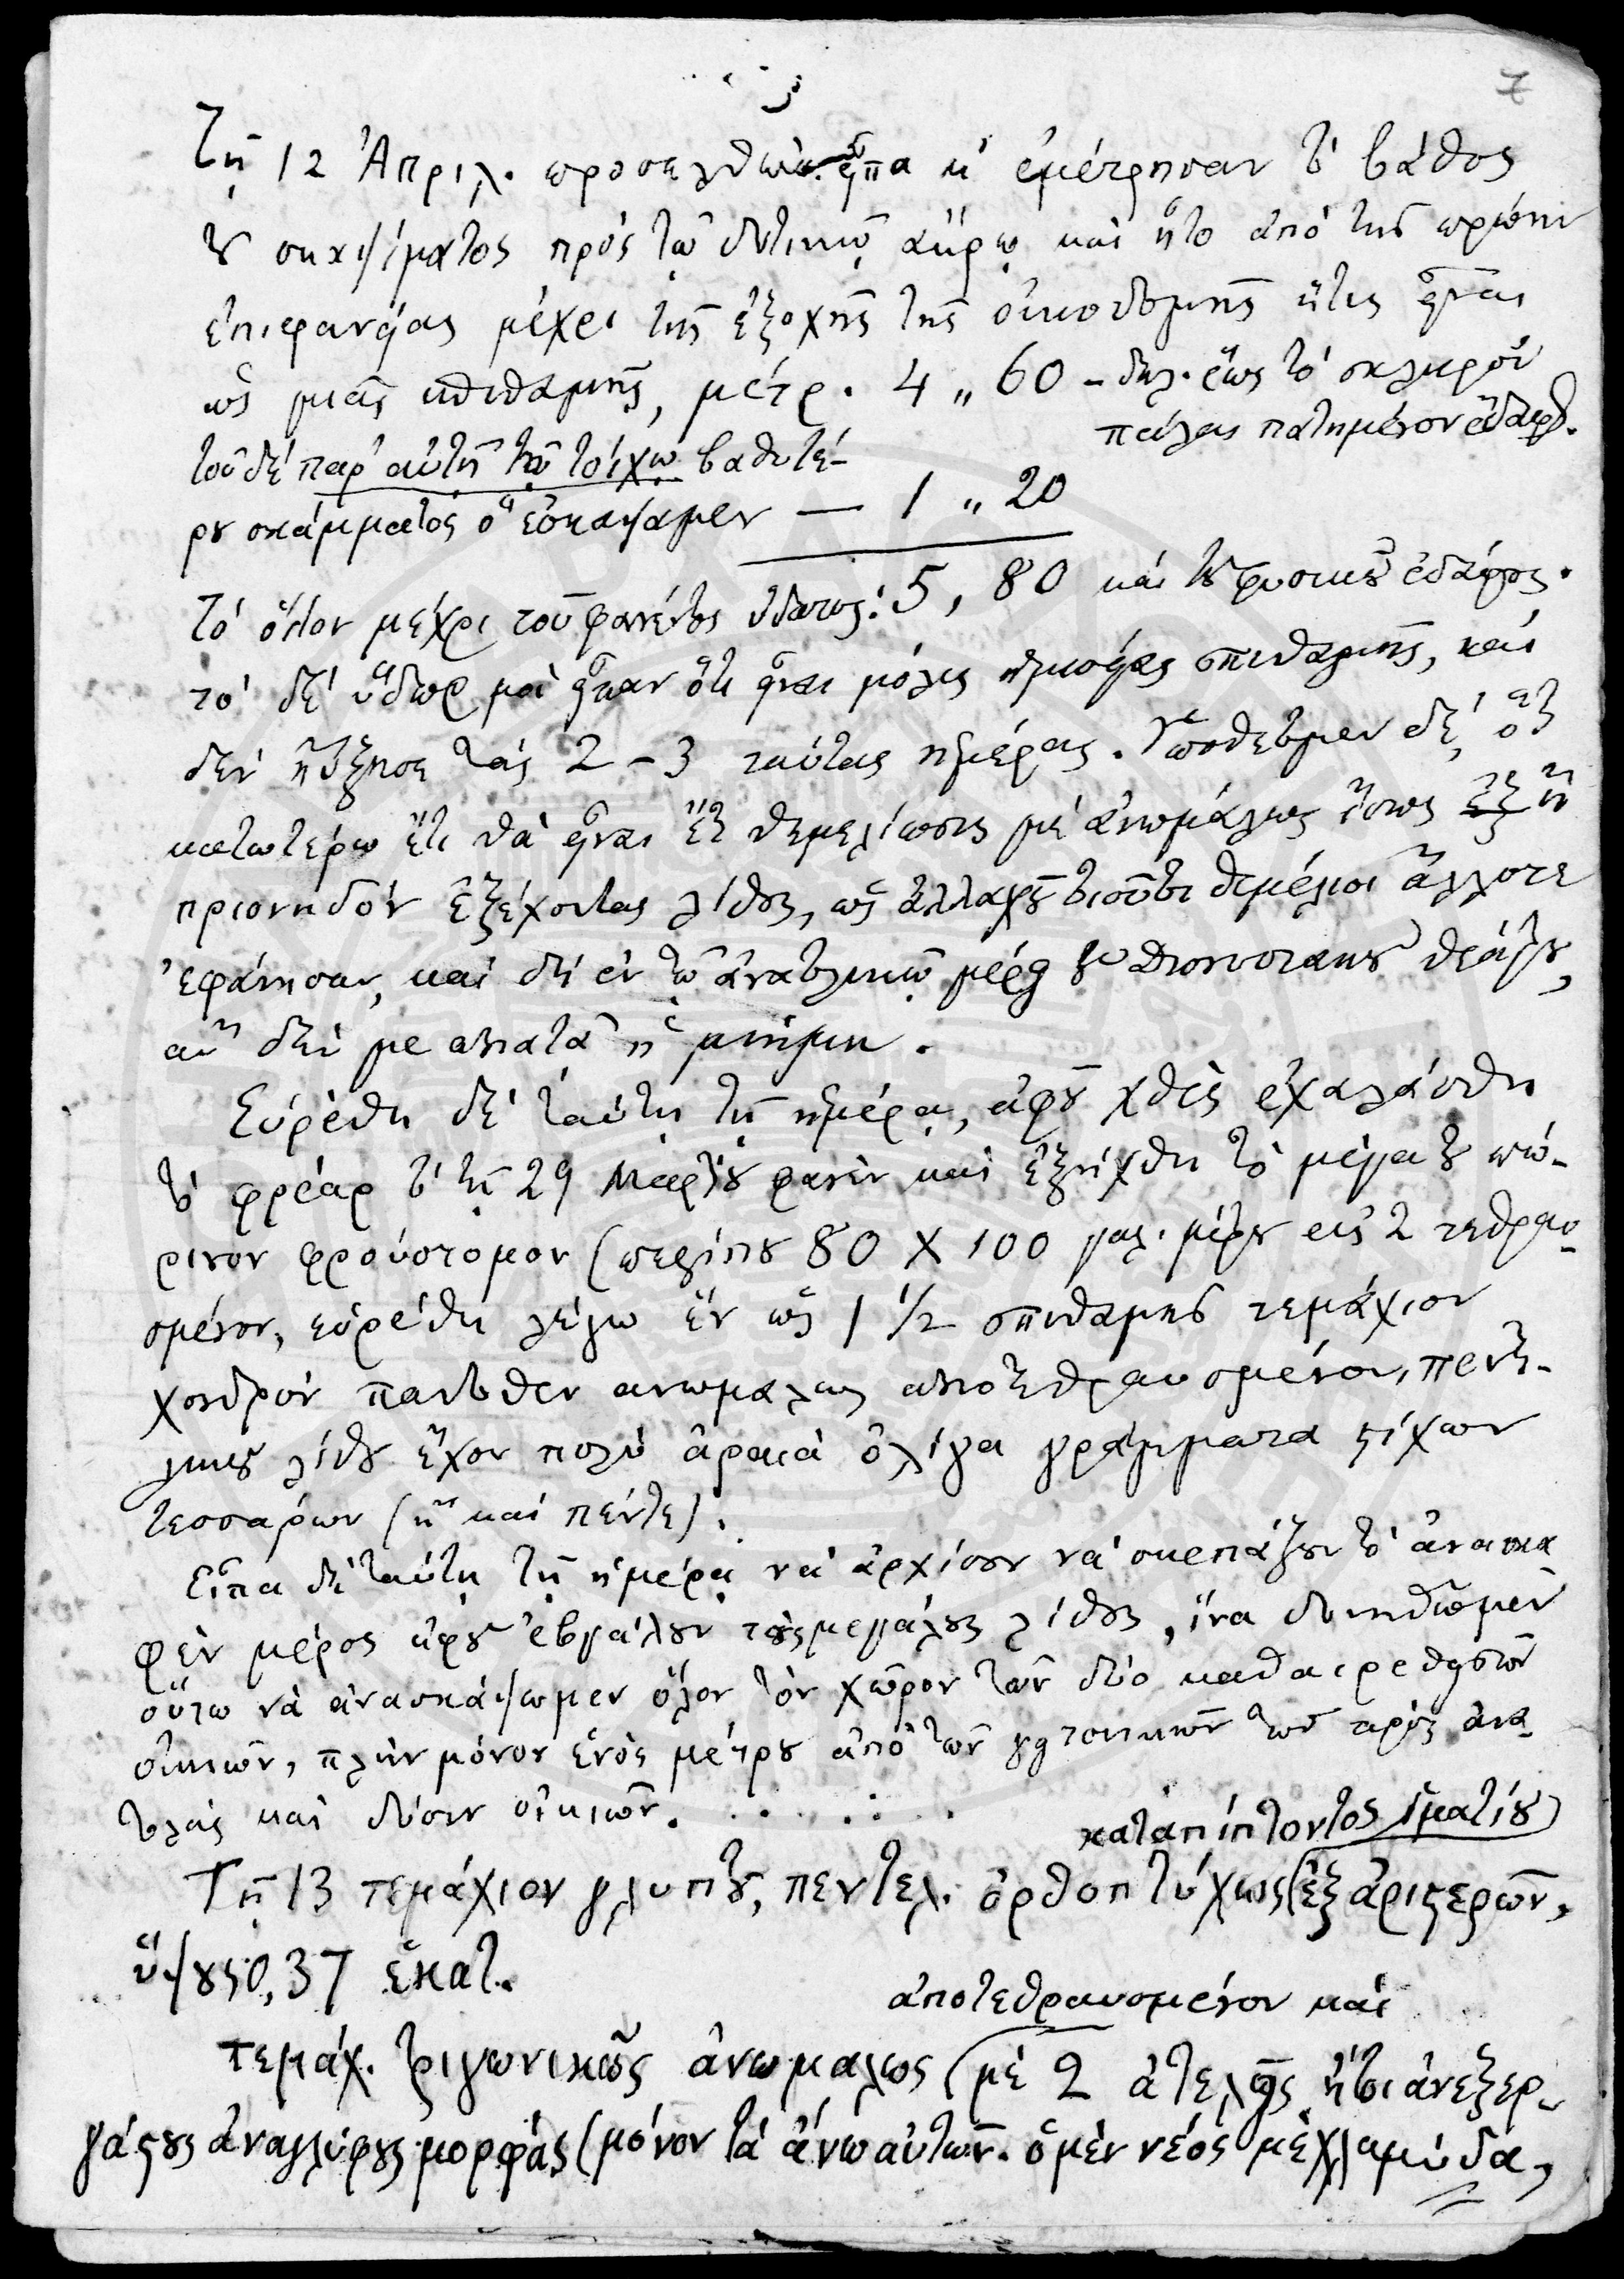 7
Τῇ 12 Ἀπριλ. προσελθὼν εἶπα κ' ἐμέτρησαν τὸ βάθος
τοῦ σκαψίματος πρὸς τῷ δυτικῷ ἄκρῳ καὶ ἦτο ἀπὸ τῆς πρώην
ἐπιφανείας μέχρι τῆς ἐξοχῆς τῆς οἰκοδομῆς ἥτις εἶναι
ὡς μιᾶς σπιθαμῆς, μέτρ. 4 ,, 60 – δηλ. ἕως τὸ σκληρὸν
πάλαι πατημένον ἔδαφ.
τοῦ δὲ παρ' αὐτῇ τῷ τοίχῳ βαθυτέ-
ρου σκάμματος ὃ ἐσκάψαμεν — 1 ,, 20
τὸ ὅλον μέχρι τοῦ φανέντος ὕδατος: 5, 80 καὶ τοῦ φυσικοῦ ἐδάφους.
τὸ δὲ ὕδωρ μοὶ εἶπαν ὅτι εἶναι μόλις ἡμισείας σπιθαμῆς, καὶ
δὲν ηὔξησε τὰς 2 – 3 ταύτας ἡμέρας. Ὑποθέτομεν δὲ, ὅτι
κατωτέρω ἔτι θὰ εἶναι ἔτι θεμελίωσις μὲ ἀνωμάλως ἴσως ἢ
πριονηδὸν ἐξέχοντας λίθους, ὡς ἀλλαχοῦ τοιοῦτοι θεμέλιοι ἄλλοτε
ἐφάνησαν, καὶ δὴ ἐν τῷ ἀνατολικῷ μέρει τοῦ Διονυσιακοῦ θεάτρου,
ἂν δὲν με ἀπατᾷ ἡ μνήμη.
Εὑρέθη δὲ ταύτῃ τῇ ἡμέρᾳ, ἀφοῦ χθὲς ἐχαλάσθη
τὸ φρέαρ τὸ τῇ 29 Μαρτίου φανὲν καὶ ἐξήχθη τὸ μέγα τοῦ πώ-
ρινον φρούστομον (περίπου 80 Χ 100 γαλ. μέτρου εἰς 2 τεθραυ-
σμένον, εὑρέθη λέγω ἓν ὡς 1 1/2 σπιθαμῆς τεμάχιον
χονδρὸν πάντοθεν ἀνωμάλως ἀποτεθραυσμένον, πεντε-
λικοῦ λίθου ἔχον πολὺ ἀραιὰ ὀλίγα γράμματα στίχων
τεσσάρων (ἢ καὶ πέντε).
Εἶπα δὲ ταύτῃ τῇ ἡμέρᾳ νὰ ἀρχίσουν νὰ σκεπάζουν τὸ ἀνασκα
φὲν μέρος ἀφοῦ ἐβγάλουν τοὺς μεγάλους λίθους, ἵνα δυνηθῶμεν
οὕτω νὰ ἀνασκάψωμεν ὅλον τὸν χῶρον τῶν δύο καθαιρεθεισῶν
οἰκιῶν, πλὴν μόνον ἑνὸς μέτρου ἀπὸ τῶν γειτονικῶν τῶν πρὸς ἀνα-
τολὰς καὶ δύσιν οἰκιῶν. . . . . .
καταπίπτοντος ἱματίου
Τῇ 13 τεμάχιον γλυπτοῦ, πεντελ. ὀρθοπτύχως ἐξ ἀριστερῶν,
ὕψους 0,37 ἑκατ.
ἀποτεθραυσμένον καὶ
τεμάχ. τριγωνικῶς ἀνωμάλως (μὲ 2 ἀτελεῖς ἤτοι ἀνεξερ-
γάστους ἀναγλύφους μορφὰς (μόνον τὰ ἄνω αὐτῶν. ὁ μὲν νέος μὲ χλαμύδα,